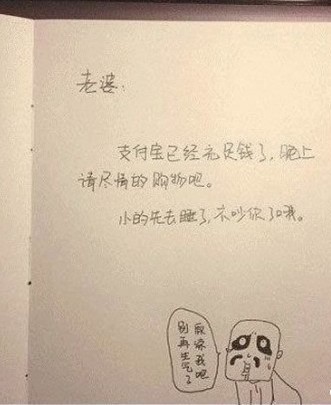 老婆:
支付宝已经充足钱了,晚上
请尽情的购物吧。
小的先去睡了,不吵你了哦。
原谅我吧
别再生气了